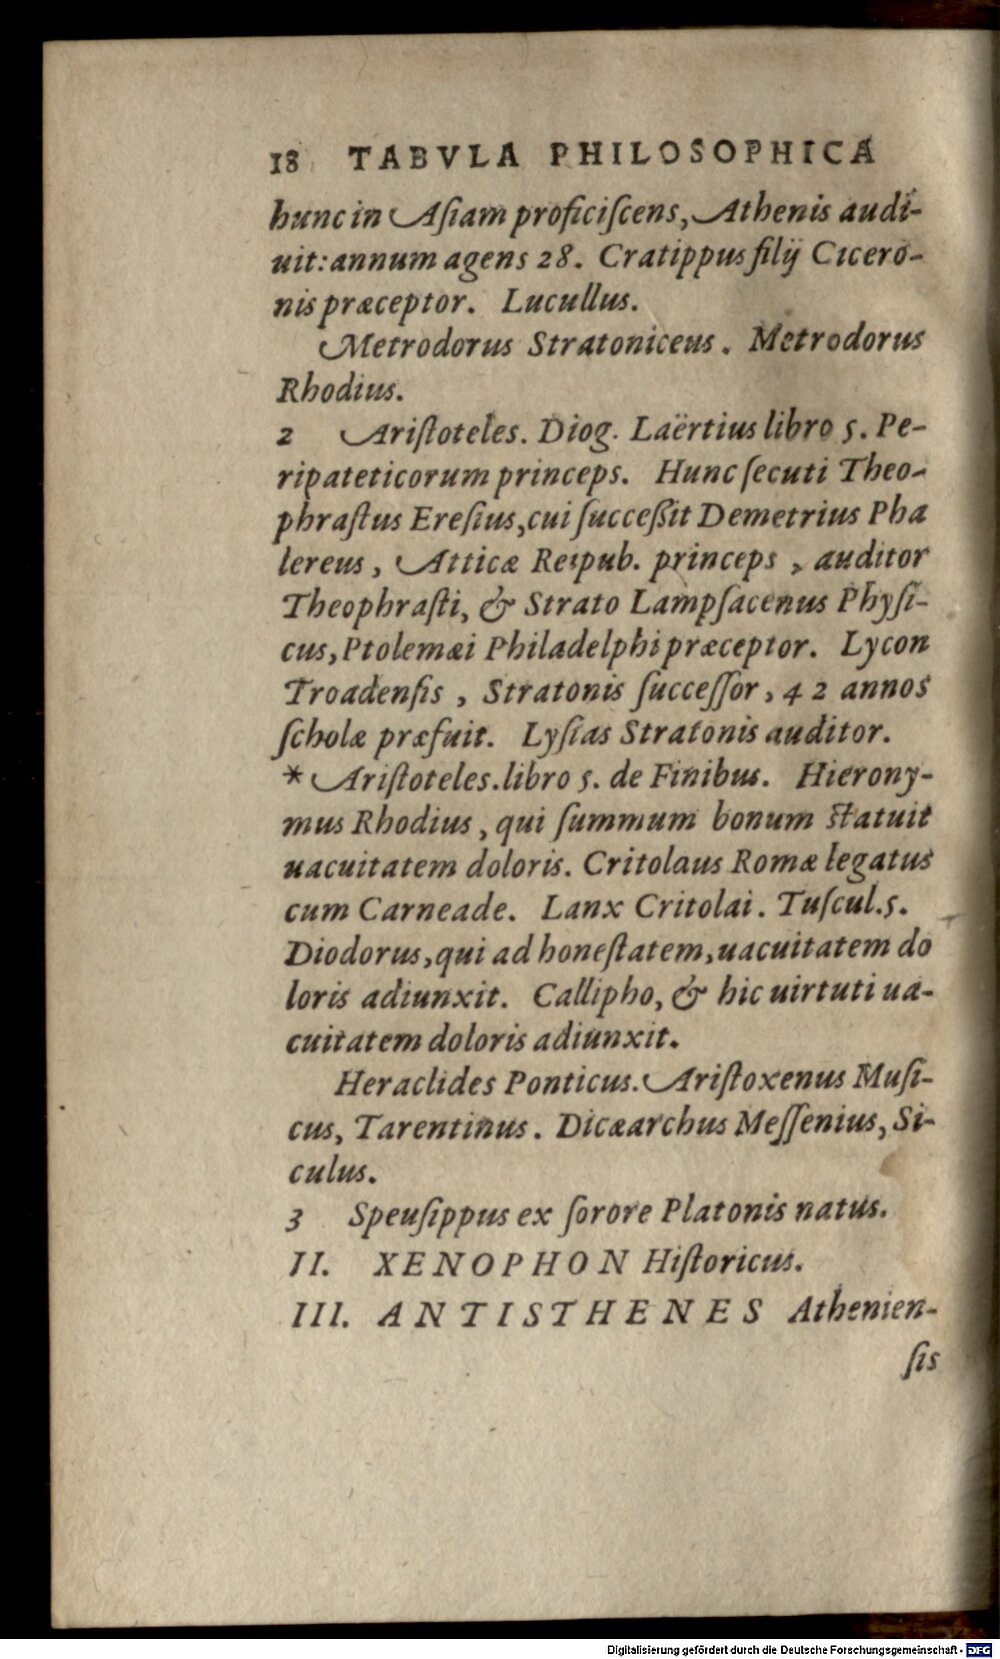 18 TABVLA PHILOSOPHICA
hunc in Aſiam proficiſcens, Athenis audi-
uit: annum agens 28. Cratippus filij Cicero-
nis præceptor. Lucullus.
Metrodorus Stratoniceus. Metrodorus
Rhodius.
2 Ariſtoteles. Diog. Laërtius libro 5. Pe-
ripateticorum princeps. Hunc ſecuti Theo-
phraſtus Ereſius, cui ſucceßit Demetrius Pha
lereus, Atticæ Reipub. princeps, auditor
Theophraſti, & Strato Lampſacenus Phyſi-
cus, Ptolemæi Philadelphi præceptor. Lycon
Troadenſis, Stratonis ſucceſſor, 42 annos
ſcholæ præfuit. Lyſias Stratonis auditor.
* Ariſtoteles. libro 5. de Finibus. Hierony-
mus Rhodius, qui ſummum bonum ſtatuit
uacuitatem doloris. Critolaus Romæ legatus
cum Carneade. Lanx Critolai. Tuſcul. 5.
Diodorus, qui ad honeſtatem, uacuitatem do
loris adiunxit. Callipho, & hic uirtuti ua-
cuitatem doloris adiunxit.
Heraclides Ponticus. Ariſtoxenus Muſi-
cus, Tarentinus. Dicæarchus Meſſenius, Si-
culus.
3 Speuſippus ex ſorore Platonis natus.
II. XENOPHON Hiſtoricus.
III. ANTISTHENES Athenien-
ſis
Digitalisierung gefördert durch die Deutsche Forschungsgemeinschaft - DFG